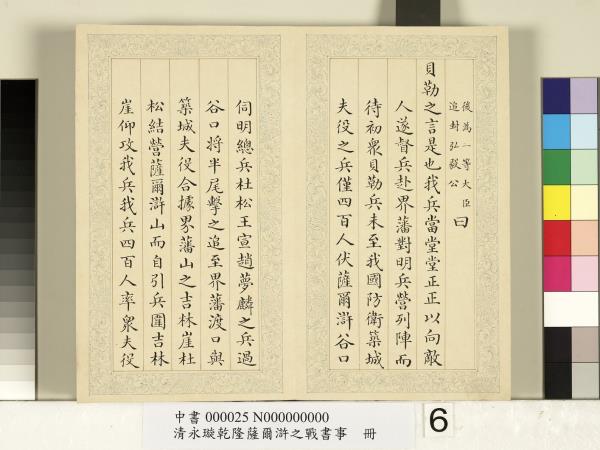 後為一等大臣
追封弘毅公
曰
貝勒之言是也我兵當堂堂正正以向敵
人遂督兵赴界藩對明兵營列陣而
待初衆貝勒兵未至我國防衛築城
夫役之兵僅四百人伏薩爾滸谷口
伺明總兵杜松王宣趙夢麟之兵過
谷口將半尾擊之追至界藩渡口與
築城夫役合據界藩山之吉林崖杜
松結營薩爾滸山而自引兵圍吉林
崖仰攻我兵我兵四百人率衆夫役
中書 000025 N000000000
清永璇乾隆薩爾滸之戰書事 冊
6